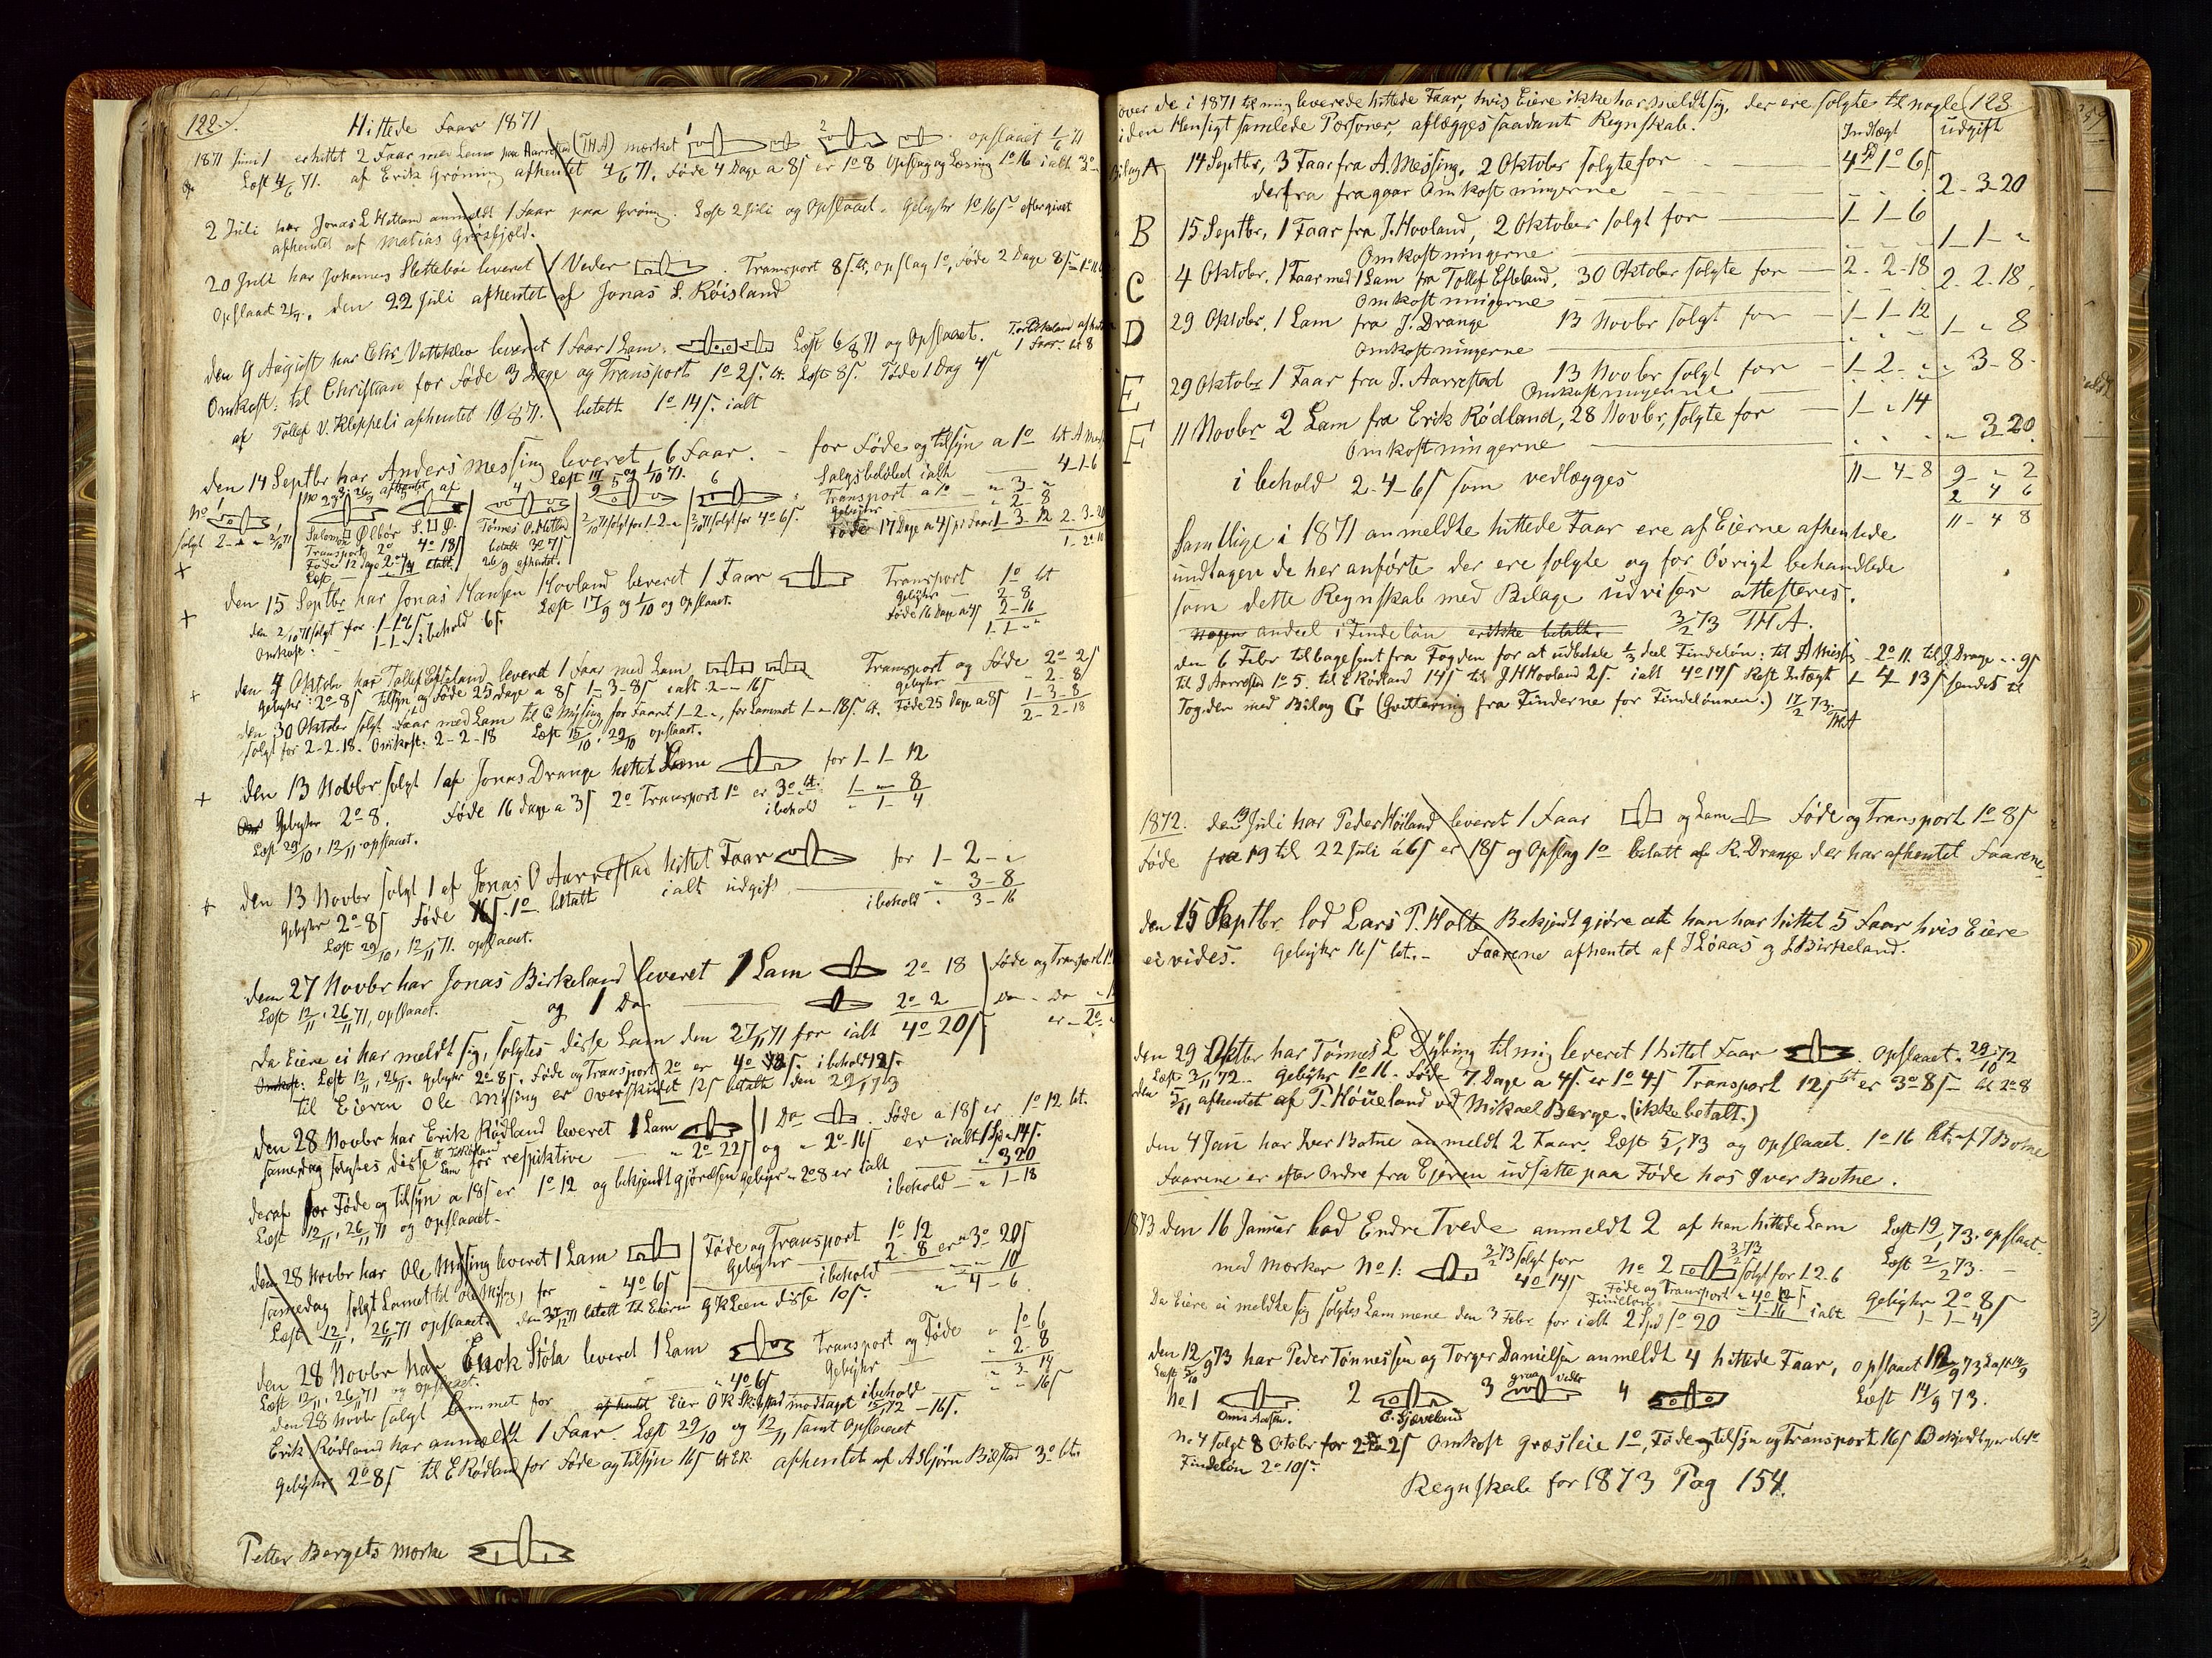 122.
Hittede Faar 1871
1871 Juni 1 er hittet 2 Faar med Lam paa Aarrestad (THA) mærket 1 2 opslaaet 1/6 71
Læst 4/6 71. af Erik Grøning afhentet 4/6 71. Føde 4 Dage a 8ſ er 1º 8 Opslag og Læsning 1º 16 ialt 3º
2 Juli har Jonas L Hetland anmeldt 1 Faar paa Grøning. Læst 2 Juli og Opslaaet. Gebyhr 1º 16ſ eftergivet
afhentet af Matias Grøsfjeld.
20 Juli har Johannes Slettebøe leveret 1 Veder Transport 8ſ. bt, opslag 1º, Føde 2 Dage 8ſ
Opslaaet 21/7. den 22 Juli afhentet af Jonas S. Røisland
den 9 August har Chr Vatteklev leveret 1 Faar 1 Lam. Læst 6/8 71 og Opslaaet.
Omkost: til Christian for Føde 3 Dage og Transport 1º 2ſ. bt. Læst 8ſ. Føde 1 Dag 4ſ
af Tollef V. Kleppeli afhentet 10/8 71. betalt 1º 14ſ. ialt
den 14 Septbr har Anders Messing leveret 6 Faar. for Føde og tilsyn a 1º
Læst 17/9 og 1/10 71.
Salgsbeløbet ialt 4-1-6
Transport a 1º - 3 -
Gebyhr - 2 - 8
Føde 17 Dage a 4ſ pr Faar 1-3-12 2-3-20
No 1 4 5 6
Salomon Ølbør Tønnes O. Hetland 2/10 71 solgt for 1-2- 2/10 71 solgt for 4º 6ſ.
Transport 2º 4º 18ſ betalt 3º 7ſ
Føde 12 dage 26/9 afhentet.
den 15 Septbr har Jonas Hansen Hovland leveret 1 Faar Transport 1º bt
den 2/10 71 solgt for 1-1º 6ſ Læst 17/9 og 1/10 og Opslaaet. Gebyhr - 2-8
Omkost: 1-1- ibehold 6ſ. Føde 16 Dage a 4ſ 2-16
1-1-
den 4 Oktober har Tollef Efteland leveret 1 Faar med Lam Transport og Føde 2º 2ſ
Gebyhr: 2º 8ſ Tilsyn og Føde 25 Dage a 8ſ 1-3-8ſ ialt 2- - 16ſ Gebyhr - 2-8
den 30 Oktober solgt Faar med Lam til E Mysing, for Faaret 1-2-, for Lammet 1- - 18ſ. bt. Føde 25 Dage a 8ſ 1-3-8
solgt for 2-2-18. Omkost: 2-2-18 Læst 15/10, 29/10 opslaaet. 2-2-18
den 13 Novbr solgt 1 af Jonas Drange hittet Lam for 1-1-12
Gebyhr 2º 8. Føde 16 dage a 3ſ 2º Transport 1º er 3º bt. 1- - 8
Læst 29/10, 12/11 opslaaet. ibehold - 1-4
den 13 Novbr solgt 1 af Jonas O Aarrestad hittet Faar for 1-2-
Gebyhr 2º 8ſ Føde 1º betalt ialt udgift - 3-8
Læst 29/10, 12/11 71. opslaaet. ibehold - 3-16
den 27 Novbr har Jonas Birkeland leveret 1 Lam 2º 18 Føde og Transport
Læst 12/11, 26/11 71, Opslaaet. og 1 Do 2º 2 Do - Do
Da Eiere ei har meldt sig, solgtes disse Lam den 27/11 71 for ialt 4º 20ſ. er - 2º
Omkost: Læst 12/11, 26/11. Gebyhr 2º 8ſ. Føde og Transport 2º er 4º ibehold 12ſ.
til Eieren Ole Mysing er Overskudet 12ſ betalt den 22/1 73
den 28 Novbr har Erik Rødland leveret 1 Lam 1 Do Føde a 18ſ er 1º 12 bt.
samedag solgtes disse Lam for respektive - 2º 22ſ og - 2º 16ſ er ialt 1 Sp - 14ſ.
deraf for Føde og Tilsyn a 18ſ er 1º 12 og bekjendtgjørelsen Gebyr - 2º 8 er ialt - 3 20
Læst 12/11, 26/11 71 og Opslaaet. ibehold - 1-18
den 28 Novbr har Ole Mysing leveret 1 Lam Føde og Transport 1º 12
samedag solgt Lamet til Ole Mysing, for - 4º 6ſ Gebyhr 2-8 er - 3º 20ſ
Læst 12/11, 26/11 71 opslaaet. ibehold - - 10
den 28 Novbr har Enok Stöla leveret 1 Lam Transport og Føde - 1º 6
Læst 12/11, 26/11 71 og Opslaaet. Gebyhr - 2-8
den 28 Novbr solgt Lammet for - 4º 6ſ ibehold - - 16ſ
Erik Rødland har anmeldt 1 Faar. Læst 29/10 og 12/11 samt Opslaaet
Gebyhr 2º 8ſ til E Rødland for Føde og Tilsyn 16ſ bt ER. afhentet af Asbjørn Bilstad 3º bt.
Petter Bergets Mærke
123
over de i 1871 til mig leverede hittede Faar, hvis Eiere ikke har meldt sig, der ere solgte til nogle
i den Hensigt samlede Personer, aflægges saadant Regnskab.
Indtægt udgift
Bilag A 14 Septbr, 3 Faar fra A. Messing, 2 Oktober solgte for 4 1º 6ſ
derfra fragaar Omkostningerne 2-3-20
B 15 Septbr, 1 Faar fra J. Hovland, 2 Oktober solgt for 1-1-6
Omkostningerne 1-1-
C 4 Oktober, 1 Faar med 1 Lam fra Tollef Efteland, 30 Oktober solgte for 2-2-18
Omkostningerne 2-2-18
D 29 Oktober, 1 Lam fra J. Drange 13 Novbr solgt for 1-1-12
Omkostningerne 1- - 8
E 29 Oktober 1 Faar fra J. Aarrestad 13 Novbr solgt for 1-2-
Omkostningerne - 3-8
F 11 Novbr 2 Lam fra Erik Rødland, 28 Novbr, solgte for 1- - 14
Omkostningerne - 3 20
i behold 2-4-6ſ som vedlægges 11-4-8 9- - 2
2 4 6
11-4 8
Samtlige i 1871 anmeldte hittede Faar ere af Eierne afhentede
undtagen de her anførte der ere solgte og for Øvrigt behandlede
som dette Regnskab med Bilage udviser attesteres.
nogen andeel i Findeløn er ikke betalt. 3/2 73 THA.
den 6 Febr tilbagesent fra Fogden for at udbetale 1/3 deel Findeløn: til A Messing - 2º 11. til J Drange - - 9ſ
til J Aarrestad 1º 5. til E Rødland 14ſ til J H Hovland 2ſ. ialt 4º 17ſ Rest Intægt 1-4-13ſ sendes til
Fogden med Bilag G (Qvittering fra Finderne for Findelønnen.) 17/2 73. THA
1872. den 19 Juli har Peder Høiland leveret 1 Faar og Lam Føde og Transport 1º 8ſ
Føde fra 19 til 22 Juli a 6ſ er 18ſ og Opslag 1º betalt af R. Drange der har afhentet Faarene.
den 15 Septbr. lod Lars P. Holte Bekjendtgjøre at han har hittet 5 Faar hvis Eiere
ei vides. Gebyhr 16ſ bt. - Faarene afhentet af J Løaas og L Birkeland.
den 29 Oktbr har Tønnes L Dybing til mig leveret 1 hittet Faar Opslaaet. 29/10 72
Læst 3/11 72. Gebyhr 1º 16 - Føde 7 Dage a 4ſ. er 1º 4ſ Transport 12ſ bt er 3º 8ſ
den 5/11 afhentet af P. Høüeland ved Mikael Berge. (ikke betalt.)
den 4 Jan har Iver Botne anmeldt 2 Faar. Læst 5/1 73 og Opslaaet. 1º 16 bt. af I Botne
Faarene er efter Ordre fra Ejeren udsatte paa Føde hos Iver Botne.
1873 den 16 Januar lod Endre Tvede anmeldt 2 af han hittede Lam Læst 19/1 73. opslaaet.
med Mærker No 1: 3/2 73 solgt for 4º 14ſ No 2 3/2 73 solgt for 1.2.6 Læst 2/2 73.
Føde og Transport - 4º 12ſ
Findeløn - 1-16 Gebyhr 2º 8ſ
Da Eiere ei meldte sig solgtes Lammene den 3 Febr for ialt 2 Spd 1º 20 ialt 1-4
den 12/9 73 har Peder Tønnessen og Torger Danielsen anmeldt 4 hittede Faar, opslaaet 12/9 73
No 1 2 3 graa veder 4 Læst 14/9 73.
No 4 solgt 8 October for 2ſ Omkost Græsleie 1º, Føde og tilsyn og Transport 16ſ
Findeløn 2º 10ſ
Regnskab for 1873 Pag 154.